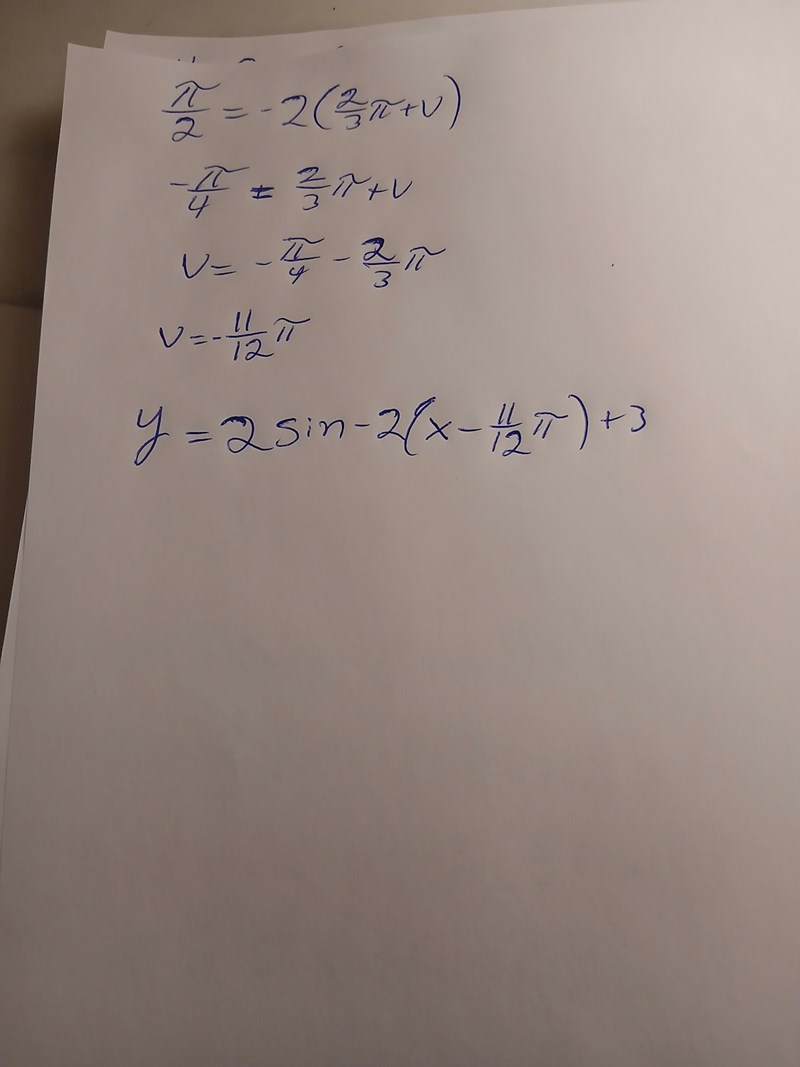 π/2 = -2(2/3π+v)
-π/4 = 2/3π+v
v= -π/4 - 2/3π
v=-11/12π
y = 2sin-2(x-11/12π)+3